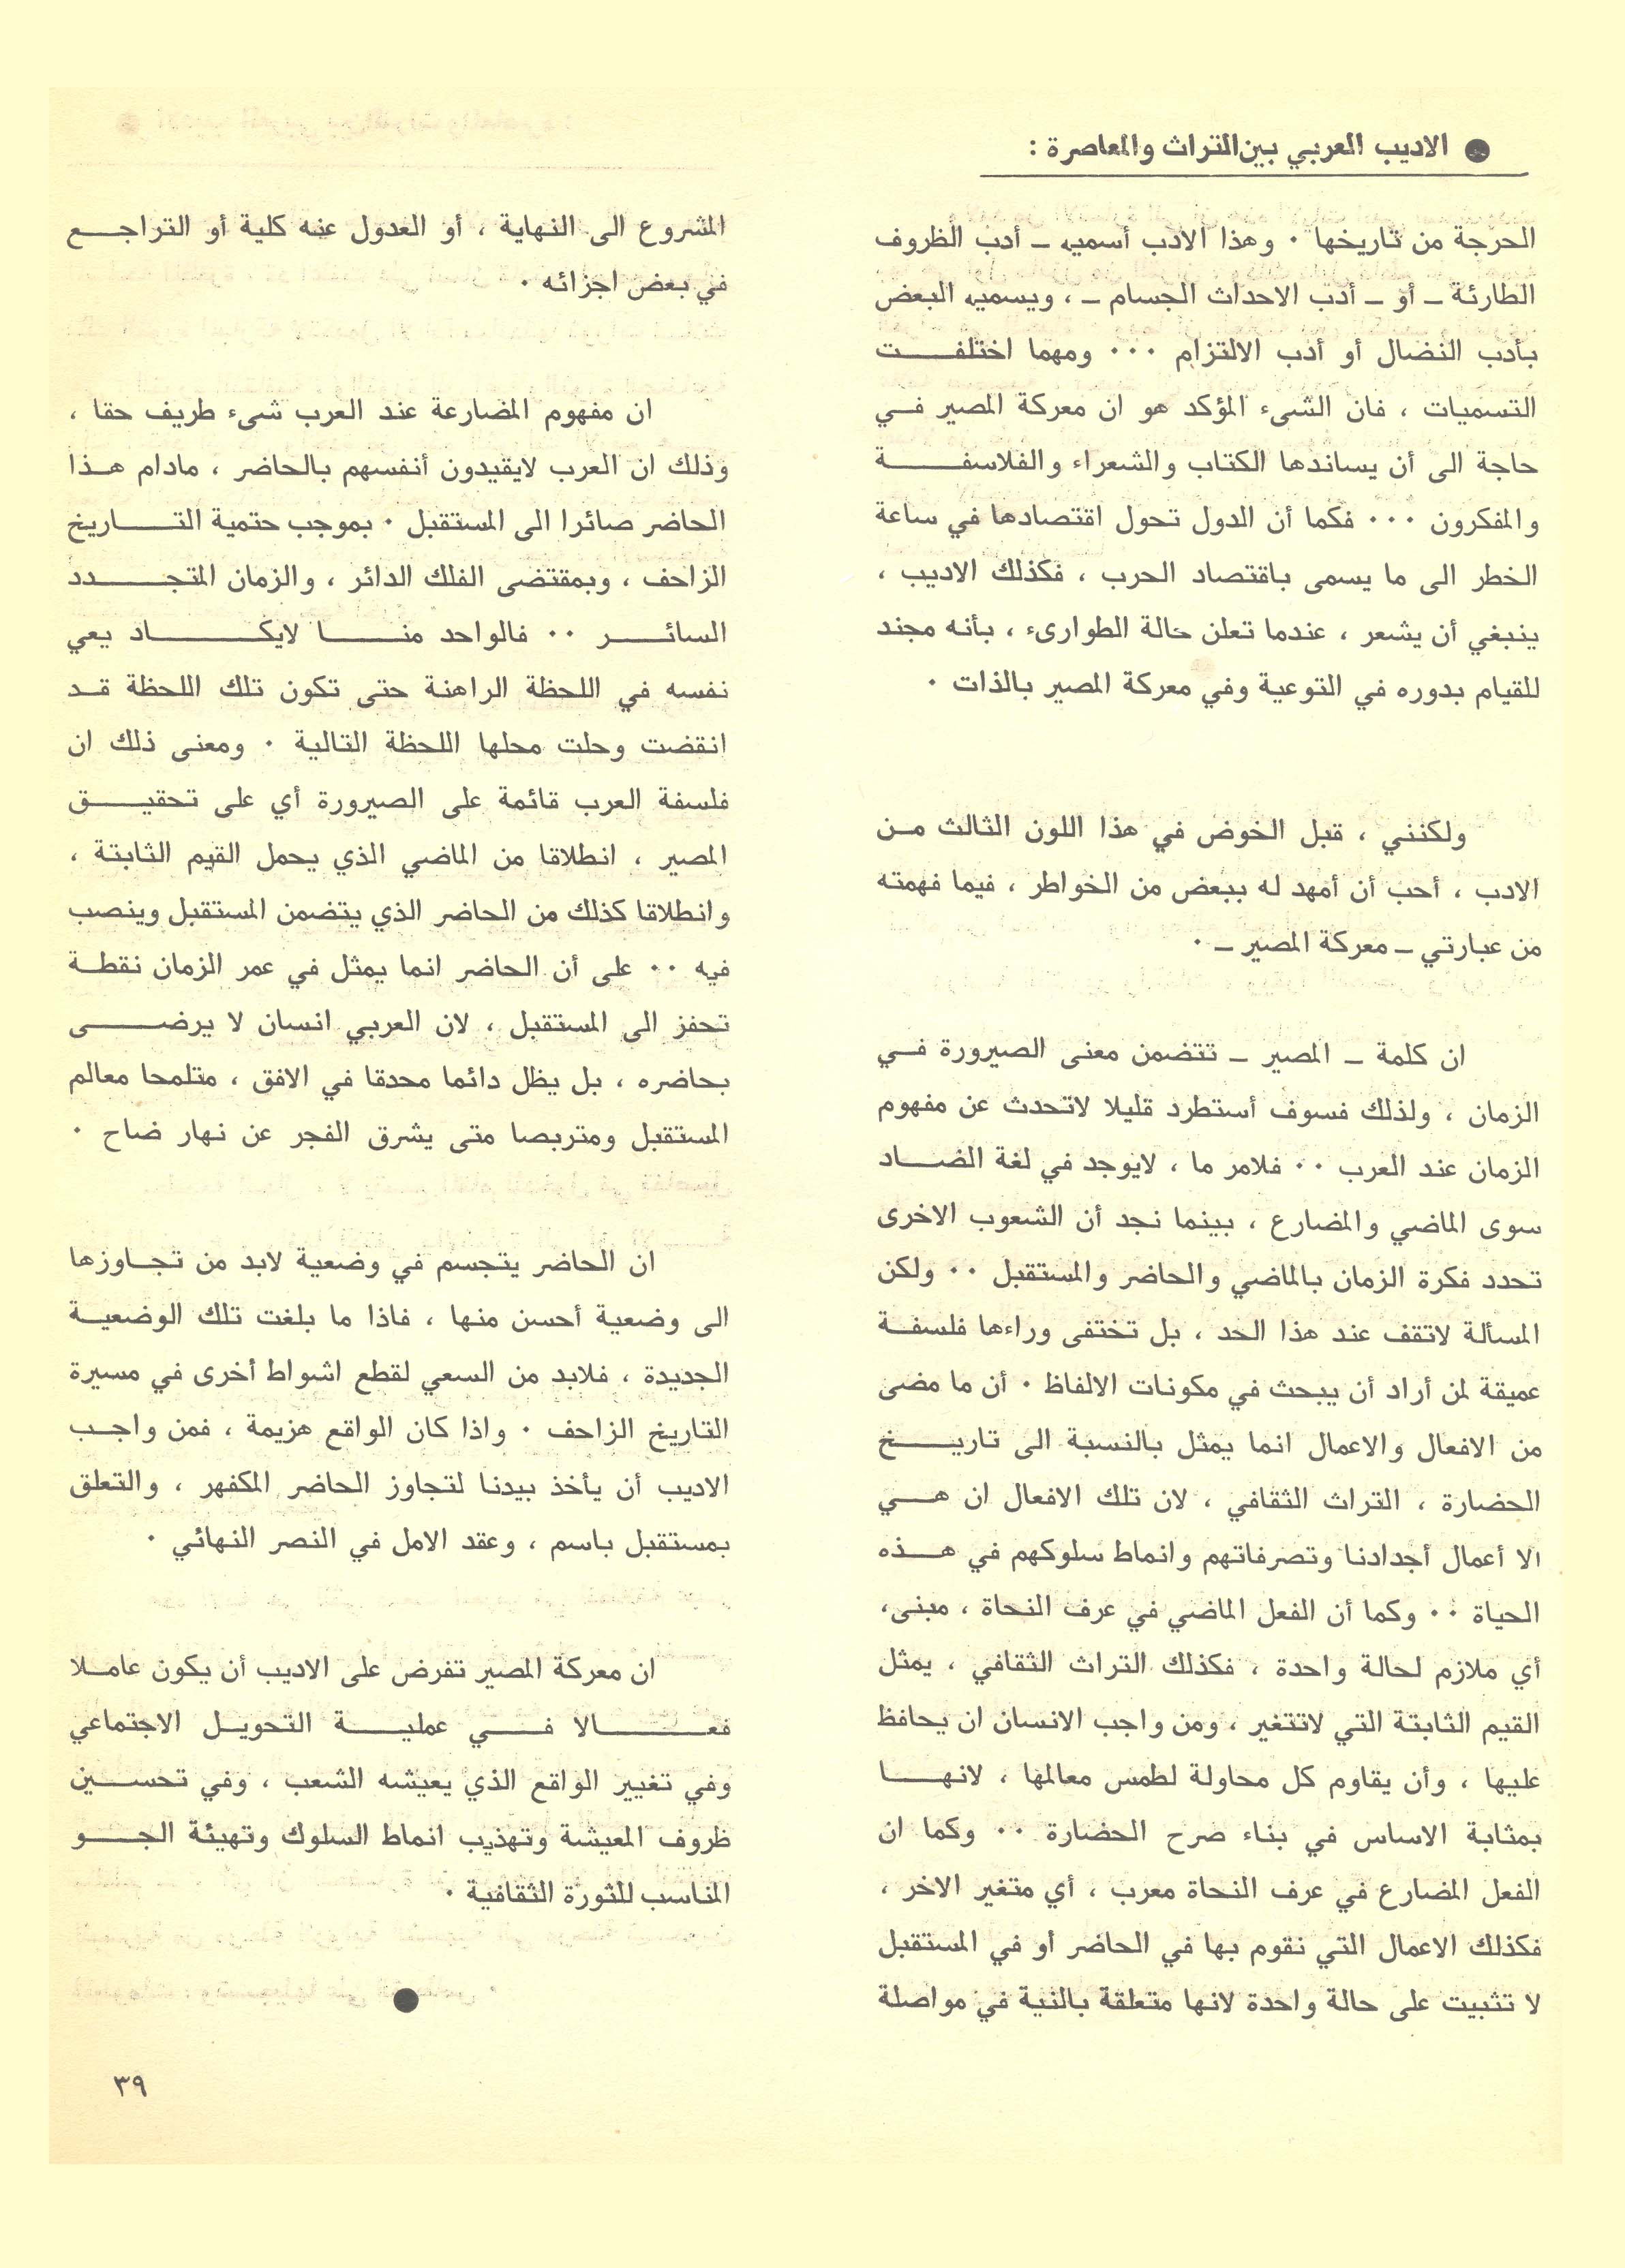 ● الاديب العربي بين التراث والمعاصرة :
الحرجة من تاريخها . وهذا الادب أسميه ـ أدب الظروف
الطارئة ـ أو ـ أدب الاحداث الجسام ـ ، ويسميه البعض
بأدب النضال أو أدب الالتزام ... ومهما اختلفت
التسميات ، فان الشىء المؤكد هو ان معركة المصير في
حاجة الى أن يساندها الكتاب والشعراء والفلاسفة
والمفكرون ... فكما أن الدول تحول اقتصادها في ساعة
الخطر الى ما يسمى باقتصاد الحرب ، فكذلك الاديب ،
ينبغي أن يشعر ، عندما تعلن حالة الطوارىء ، بأنه مجند
للقيام بدوره في التوعية وفي معركة المصير بالذات .
ولكنني ، قبل الخوض في هذا اللون الثالث من
الادب ، أحب أن أمهد له ببعض من الخواطر ، فيما فهمته
من عبارتي ـ معركة المصير ـ .
ان كلمة ـ المصير ـ تتضمن معنى الصيرورة في
الزمان ، ولذلك فسوف أستطرد قليلا لاتحدث عن مفهوم
الزمان عند العرب .. فلامر ما ، لايوجد في لغة الضاد
سوى الماضي والمضارع ، بينما نجد أن الشعوب الاخرى
تحدد فكرة الزمان بالماضي والحاضر والمستقبل .. ولكن
المسألة لاتقف عند هذا الحد ، بل تختفى وراءها فلسفة
عميقة لمن أراد أن يبحث في مكونات الالفاظ . أن ما مضى
من الافعال والاعمال انما يمثل بالنسبة الى تاريخ
الحضارة ، التراث الثقافي ، لان تلك الافعال ان هي
الا أعمال أجدادنا وتصرفاتهم وانماط سلوكهم في هذه
الحياة .. وكما أن الفعل الماضي في عرف النحاة ، مبنى،
أي ملازم لحالة واحدة ، فكذلك التراث الثقافي ، يمثل
القيم الثابتة التي لاتتغير ، ومن واجب الانسان ان يحافظ
عليها ، وأن يقاوم كل محاولة لطمس معالمها ، لانها
بمثابة الاساس في بناء صرح الحضارة .. وكما ان
الفعل المضارع في عرف النحاة معرب ، أي متغير الاخر ،
فكذلك الاعمال التي نقوم بها في الحاضر أو في المستقبل
لا تثبيت على حالة واحدة لانها متعلقة بالنية في مواصلة
المشروع الى النهاية ، أو العدول عنه كلية أو التراجع
في بعض اجزائه .
ان مفهوم المضارعة عند العرب شىء طريف حقا ،
وذلك ان العرب لايقيدون أنفسهم بالحاضر ، مادام هذا
الحاضر صائرا الى المستقبل . بموجب حتمية التاريخ
الزاحف ، وبمقتضى الفلك الدائر ، والزمان المتجدد
السائر .. فالواحد منا لايكاد يعي
نفسه في اللحظة الراهنة حتى تكون تلك اللحظة قد
انقضت وحلت محلها اللحظة التالية . ومعنى ذلك ان
فلسفة العرب قائمة على الصيرورة أي على تحقيق
المصير ، انطلاقا من الماضي الذي يحمل القيم الثابتة ،
وانطلاقا كذلك من الحاضر الذي يتضمن المستقبل وينصب
فيه .. على أن الحاضر انما يمثل في عمر الزمان نقطة
تحفز الى المستقبل ، لان العربي انسان لا يرضى
بحاضره ، بل يظل دائما محدقا في الافق ، متلمحا معالم
المستقبل ومتربصا متى يشرق الفجر عن نهار ضاح .
ان الحاضر يتجسم في وضعية لابد من تجاوزها
الى وضعية أحسن منها ، فاذا ما بلغت تلك الوضعية
الجديدة ، فلابد من السعي لقطع اشواط أخرى في مسيرة
التاريخ الزاحف . واذا كان الواقع هزيمة ، فمن واجب
الاديب أن يأخذ بيدنا لتجاوز الحاضر المكفهر ، والتعلق
بمستقبل باسم ، وعقد الامل في النصر النهائي .
ان معركة المصير تفرض على الاديب أن يكون عاملا
فعالا في عملية التحويل الاجتماعي
وفي تغيير الواقع الذي يعيشه الشعب ، وفي تحسين
ظروف المعيشة وتهذيب انماط السلوك وتهيئة الجو
المناسب للثورة الثقافية .
٣٩